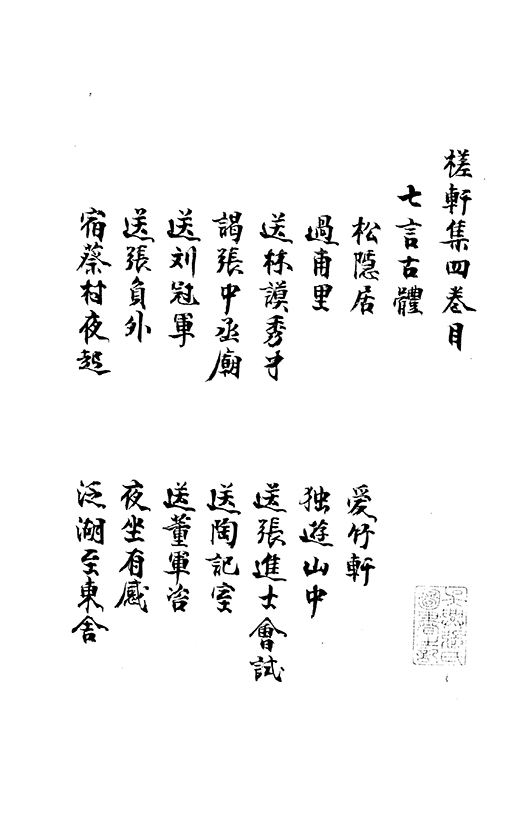 槎軒集四卷目
七言古體
松隱居
愛竹軒
過甫里
独遊山中
送林謨秀才
送張進士會試
謁張中丞廟
送陶記室
送刘冠軍
送董軍咨
送張員外
夜坐有感
宿蔡村夜起
泛湖至東舍